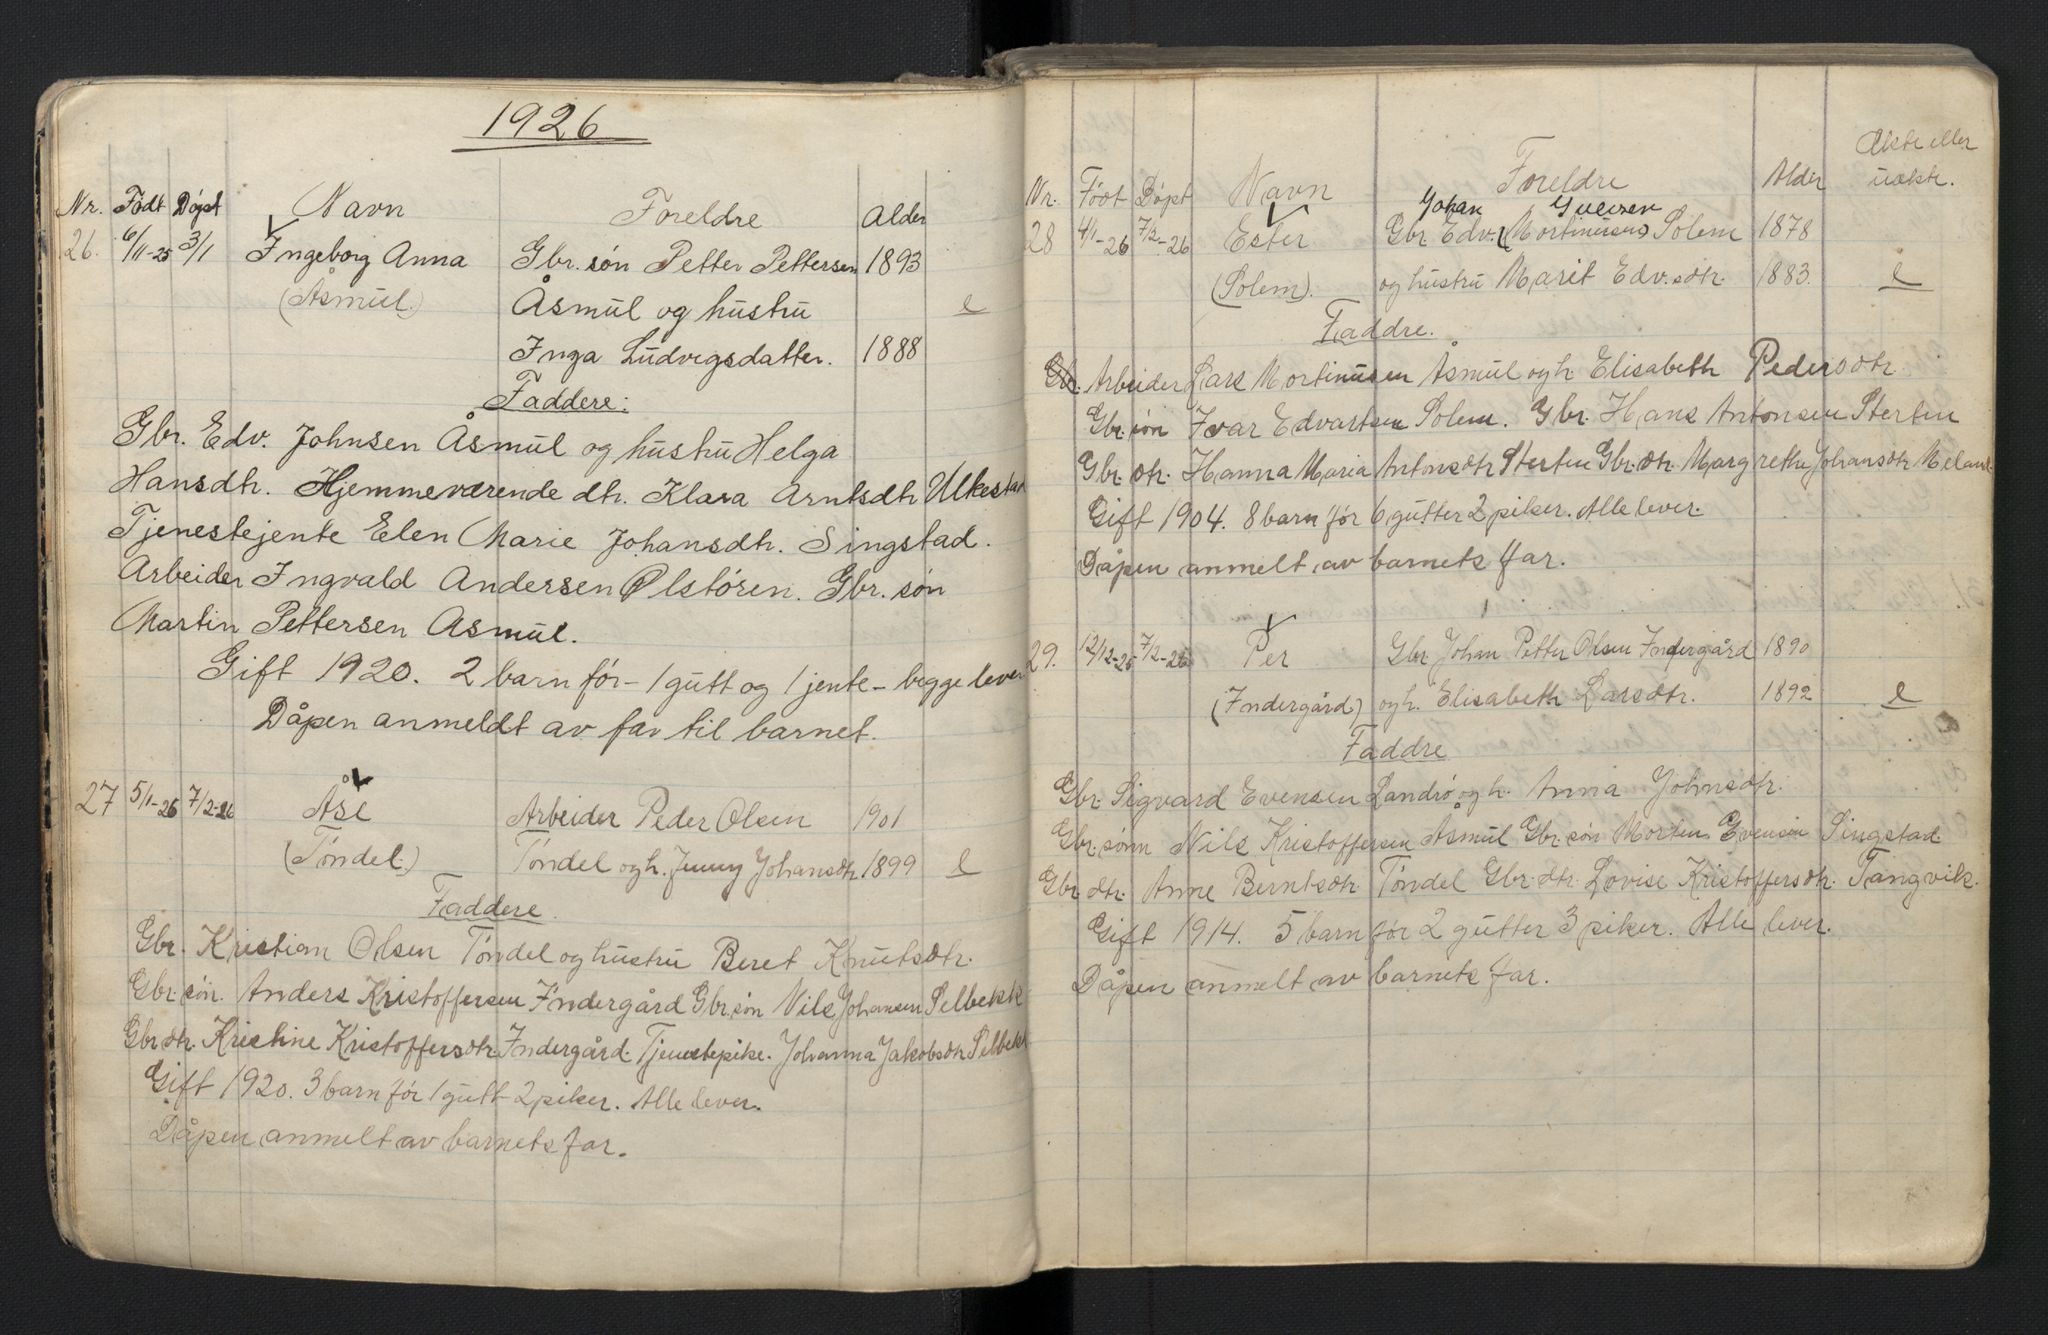 1926
Nr. Födt Döpt Navn Foreldre Alder
26. 6/11-25 3/1 Ingeborg Anna Gbr. søn Petter Pettersen 1893
(Åsmul.) Åsmul og hustru e
Inga Ludvigsdatter. 1888
Faddere:
Gbr. Edv. Johnsen Åsmul og hustru Helga
Hansdtr. Hjemmeværende dtr. Klara Arntsdtr Ulkestad
Tjenestejente Elen Marie Johansdtr. Singstad.
Arbeider Ingvald Andersen Ølstören. Gbr. søn
Martin Pettersen Åsmul.
Gift 1920. 2 barn før - 1 gutt og 1 jente - begge lever
Dåpen anmeldt av far til barnet.
27 5/1-26 7/2-26 Åse Arbeider Peder Olsen 1901
(Töndel.) Töndel og h. Jenny Johansdtr 1899 e
Faddere.
Gbr. Kristian Olsen Töndel og hustru Beret Knutsdtr.
Gbr. søn. Anders Kristoffersen Indergård Gbr. søn Nils Johansen Selbekk
Gbr. dtr. Kristine Kristoffersdtr Indergård. Tjenestepike. Johanna Jakobsdtr Selbekk
Gift 1920. 3 barn før 1 gutt 2 piker. Alle lever.
Dåpen anmelt av barnets far.
Nr. Födt Döpt Navn Foreldre Alder Ekte eller uekte.
Johan
28 4/1-26 7/2-26 Ester Gbr. Edv. (Mortinusen) Solem 1878
(Solem). og hustru Marit Edv.sdtr. 1883. e
Faddre.
Gbr. Arbeider Lars Mortinusen Åsmul og h Elisabeth Pedersdtr
Gbr. søn Ivar Edvartsen Solem. Gbr. Hans Antonsen Sterten
Gbr. dtr. Hanna Maria Antonsdtr Sterten Gbr. dtr. Margrethe Johansdtr Meland.
Gift 1904. 8 barn før 6 gutter 2 piker. Alle lever.
Dåpen anmelt av barnets far.
29. 12/12-25 7/2-26 Per Gbr Johan Petter Olsen Indergård 1890
(Indergård) og h. Elisabeth Larsdtr. 1892 e
Faddre
Gbr. Sigvard Evensen Landrö og h. Anna Johnsdtr.
Gbr. sønn Nils Kristoffersen Åsmul Gbr. søn Morten Evensen Singstad
Gbr dtr. Anne Berntsdtr Töndel Gbr. dtr. Lovise Kristoffersdtr. Tangvik.
Gift 1914. 5 barn før 2 gutter 3 piker. Alle lever.
Dåpen anmelt av barnets far.